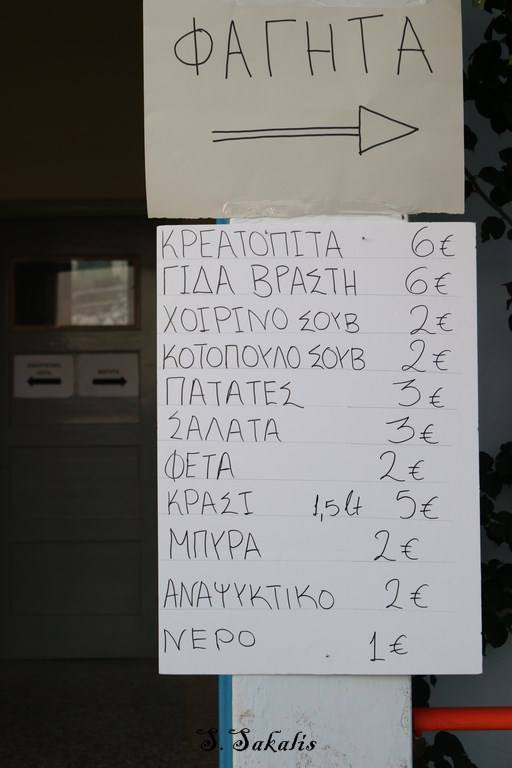 ΦΑΓΗΤΑ
ΚΡΕΑΤΟΠΙΤΑ 6€
ΓΙΔΑ ΒΡΑΣΤΗ 6€
ΧΟΙΡΙΝΟ ΣΟΥΒ 2€
ΚΟΤΟΠΟΥΛΟ ΣΟΥΒ 2€
ΠΑΤΑΤΕΣ 3€
ΣΑΛΑΤΑ 3€
ΦΕΤΑ 2€
ΚΡΑΣΙ 1,5lt 5€
ΜΠΥΡΑ 2€
ΑΝΑΨΥΚΤΙΚΟ 2€
ΝΕΡΟ 1€
S. Sakalis